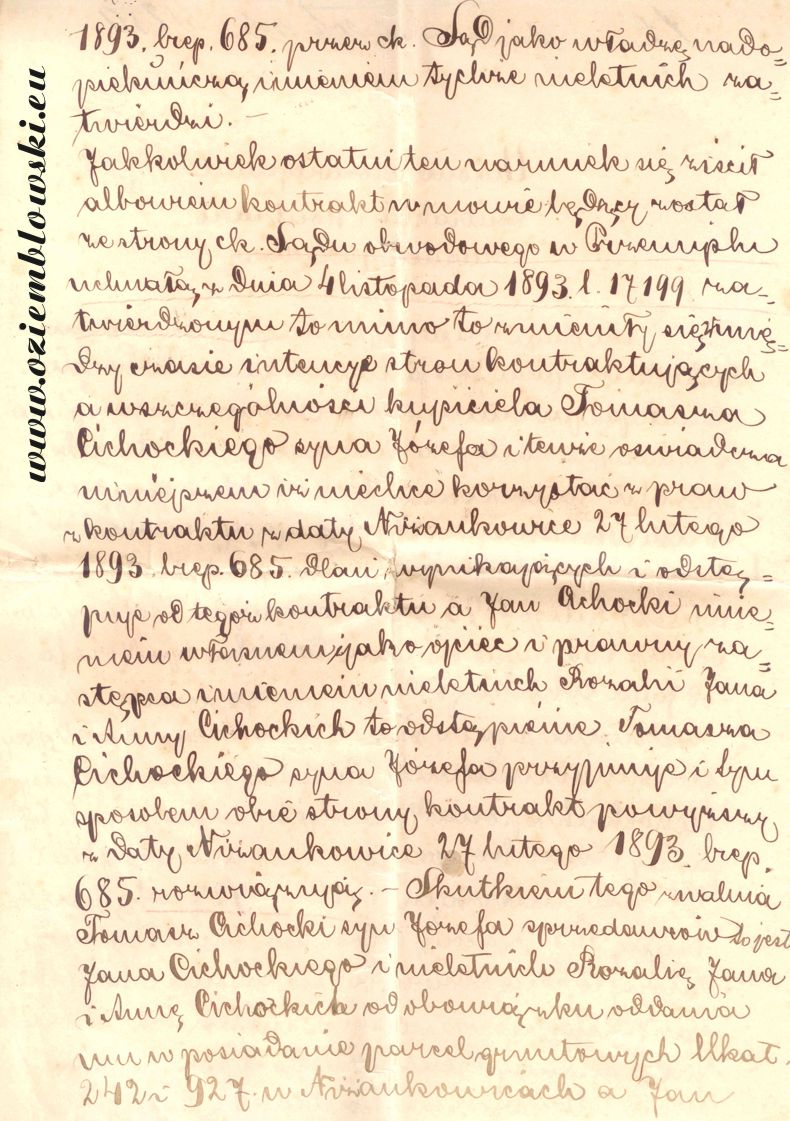 www.oziemblowski.eu
1893. lrep. 685. przez ck. Sąd jako władzę nado=
piekuńczą, imieniem tychże nieletnich za=
twierdzi. –
Jakkolwiek ostatni ten warunek się ziścił
albowiem kontrakt w mowie będący został
ze strony ck. Sądu obwodowego w Przemyślu
uchwałą z dnia 4 listopada 1893. l. 17199 za=
twierdzonym to mimo to zmieniły się w mię=
dzy czasie intencye stron kontraktujących
a w szczególności kupiciela Tomasza
Cichockiego syna Józefa i tenże oświadcza
niniejszem iż niechce korzystać z praw
z kontraktu z daty Niżankowice 27 lutego
1893. lrep. 685. dlań wynikających i odstę=
puje od tegoż kontraktu a Jan Cichocki imie=
niem własnem jako ojciec i prawny za=
stępca imieniem nieletnich Rozalii Jana
i Anny Cichockich to odstąpienie Tomasza
Cichockiego syna Józefa przyjmuje i tym
sposobem obie strony kontrakt powyższy
z daty Niżankowice 27 lutego 1893. lrep.
685. rozwiązują. – Skutkiem tego zwalnia
Tomasz Cichocki syn Józefa sprzedawców to jest
Jana Cichockiego i nieletnich Rozalię Jana
i Annę Cichockich od obowiązku oddania
mu w posiadanie parcel gruntowych lkat.
242 i 927. w Niżankowicach a Jan